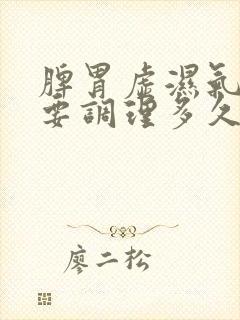 脾胃虛濕氣
要調理多久
廖二松